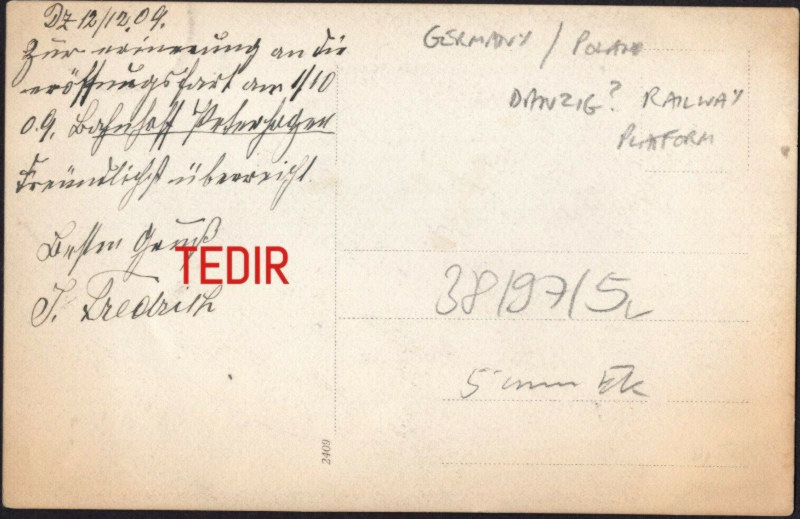 Dz 12/12.09.
Zur erinnerung an die
eröffnungsfart am 1/10
09. Bahnhoff Peterhagen
Freundlichst überreicht.
Besten Gruß
J. Fredrich
TEDIR
GERMANY / POLAND
DANZIG? RAILWAY
PLATFORM
38/97/5
5
2409